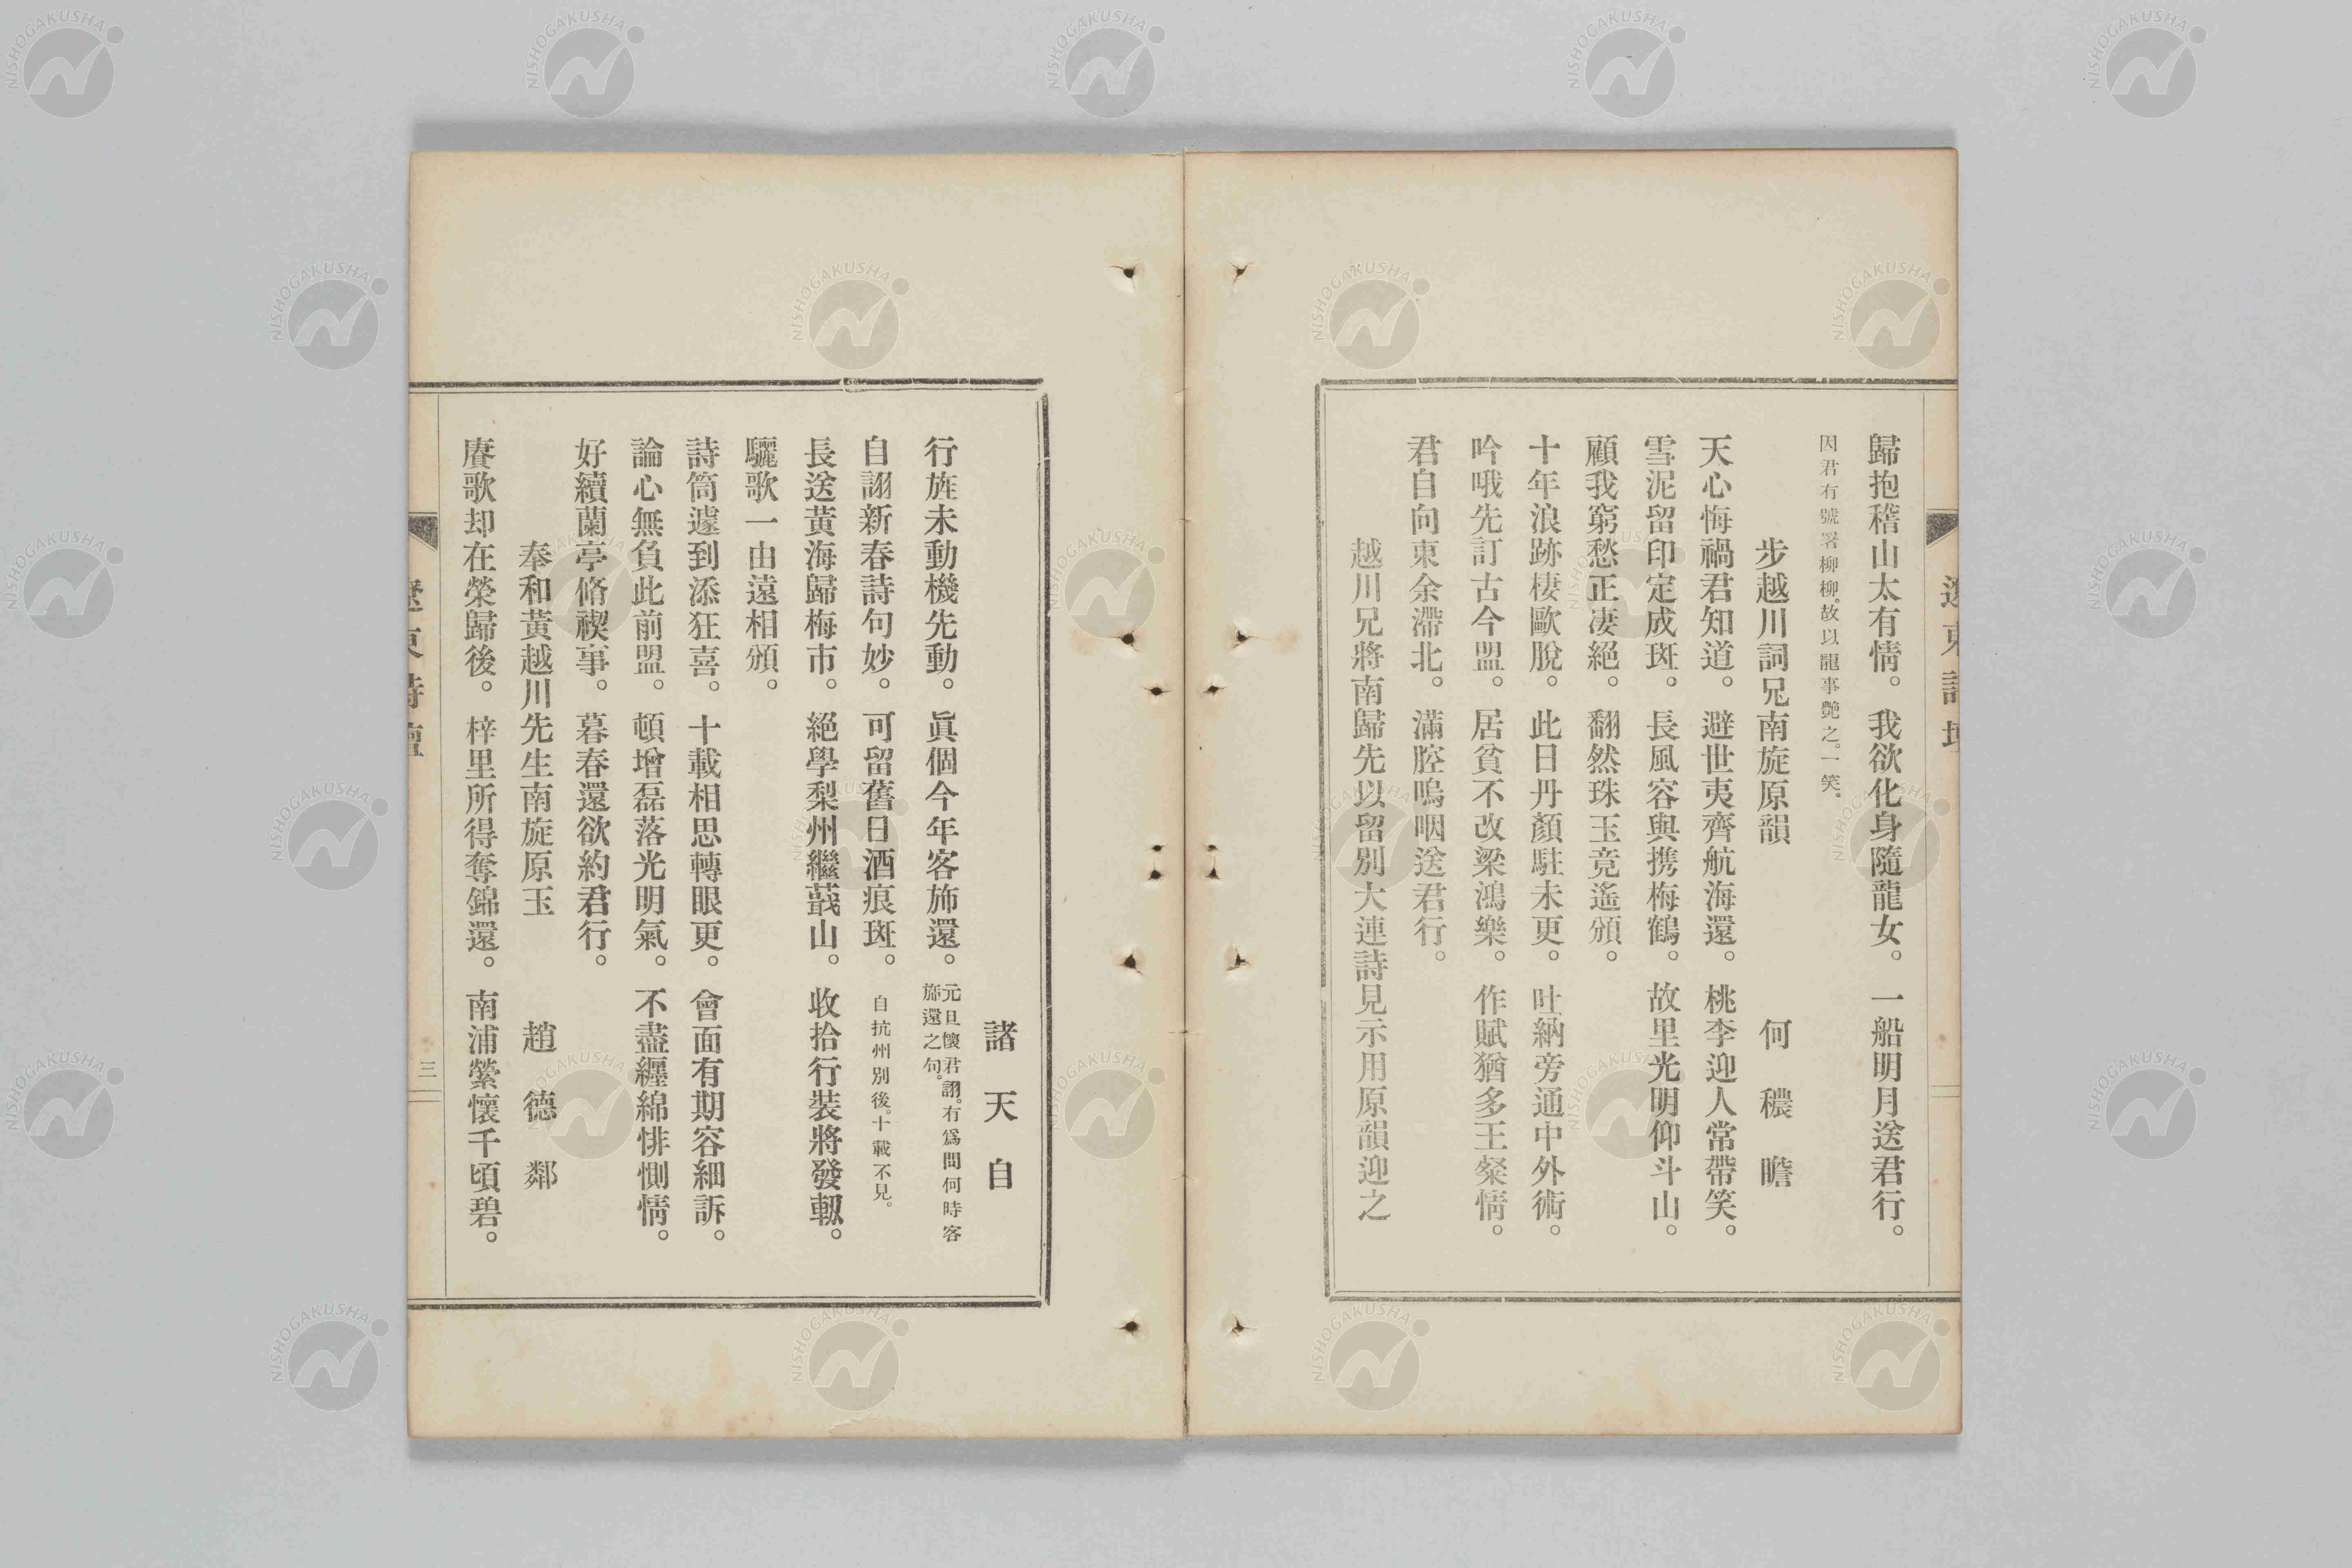 歸抱稽山太有情。我欲化身隨龍女。一船明月送君行。
因君有號署柳柳。故以龍事艷之。一笑。
步越川詞兄南旋原韻　何穠瞻
天心悔禍君知道。避世夷齊航海還。桃李迎人常帶笑。
雪泥留印定成斑。長風容與携梅鶴。故里光明仰斗山。
顧我窮愁正凄絕。翻然珠玉竞遙頒。
十年浪跡棲歐脫。此日丹顏駐未更。吐納旁通中外術。
吟哦先訂古今盟。居貧不改梁鴻樂。作賦猶多王粲情。
君自向東余滯北。滿腔嗚咽送君行。
越川兄將南歸先以留別大連詩見示用原韻迎之
諸天自
行旌未動機先動。眞個今年客斾還。元旦懷君詡。有爲問何時客
斾還之句。
自詡新春詩句妙。可留舊日酒痕斑。自抗州別後。十載不見。
長送黃海歸梅市。絕學梨州繼蕺山。收拾行裝將發軔。
驪歌一由遠相頒。
詩筒遽到添狂喜。十載相思轉眼更。會面有期容細訴。
論心無負此前盟。頓增磊落光明氣。不盡纒綿悱惻情。
好續蘭亭脩禊事。暮春還欲約君行。
奉和黃越川先生南旋原玉　趙德鄰
賡歌却在榮歸後。梓里所得奪錦還。南浦縈懷千頃碧。
三